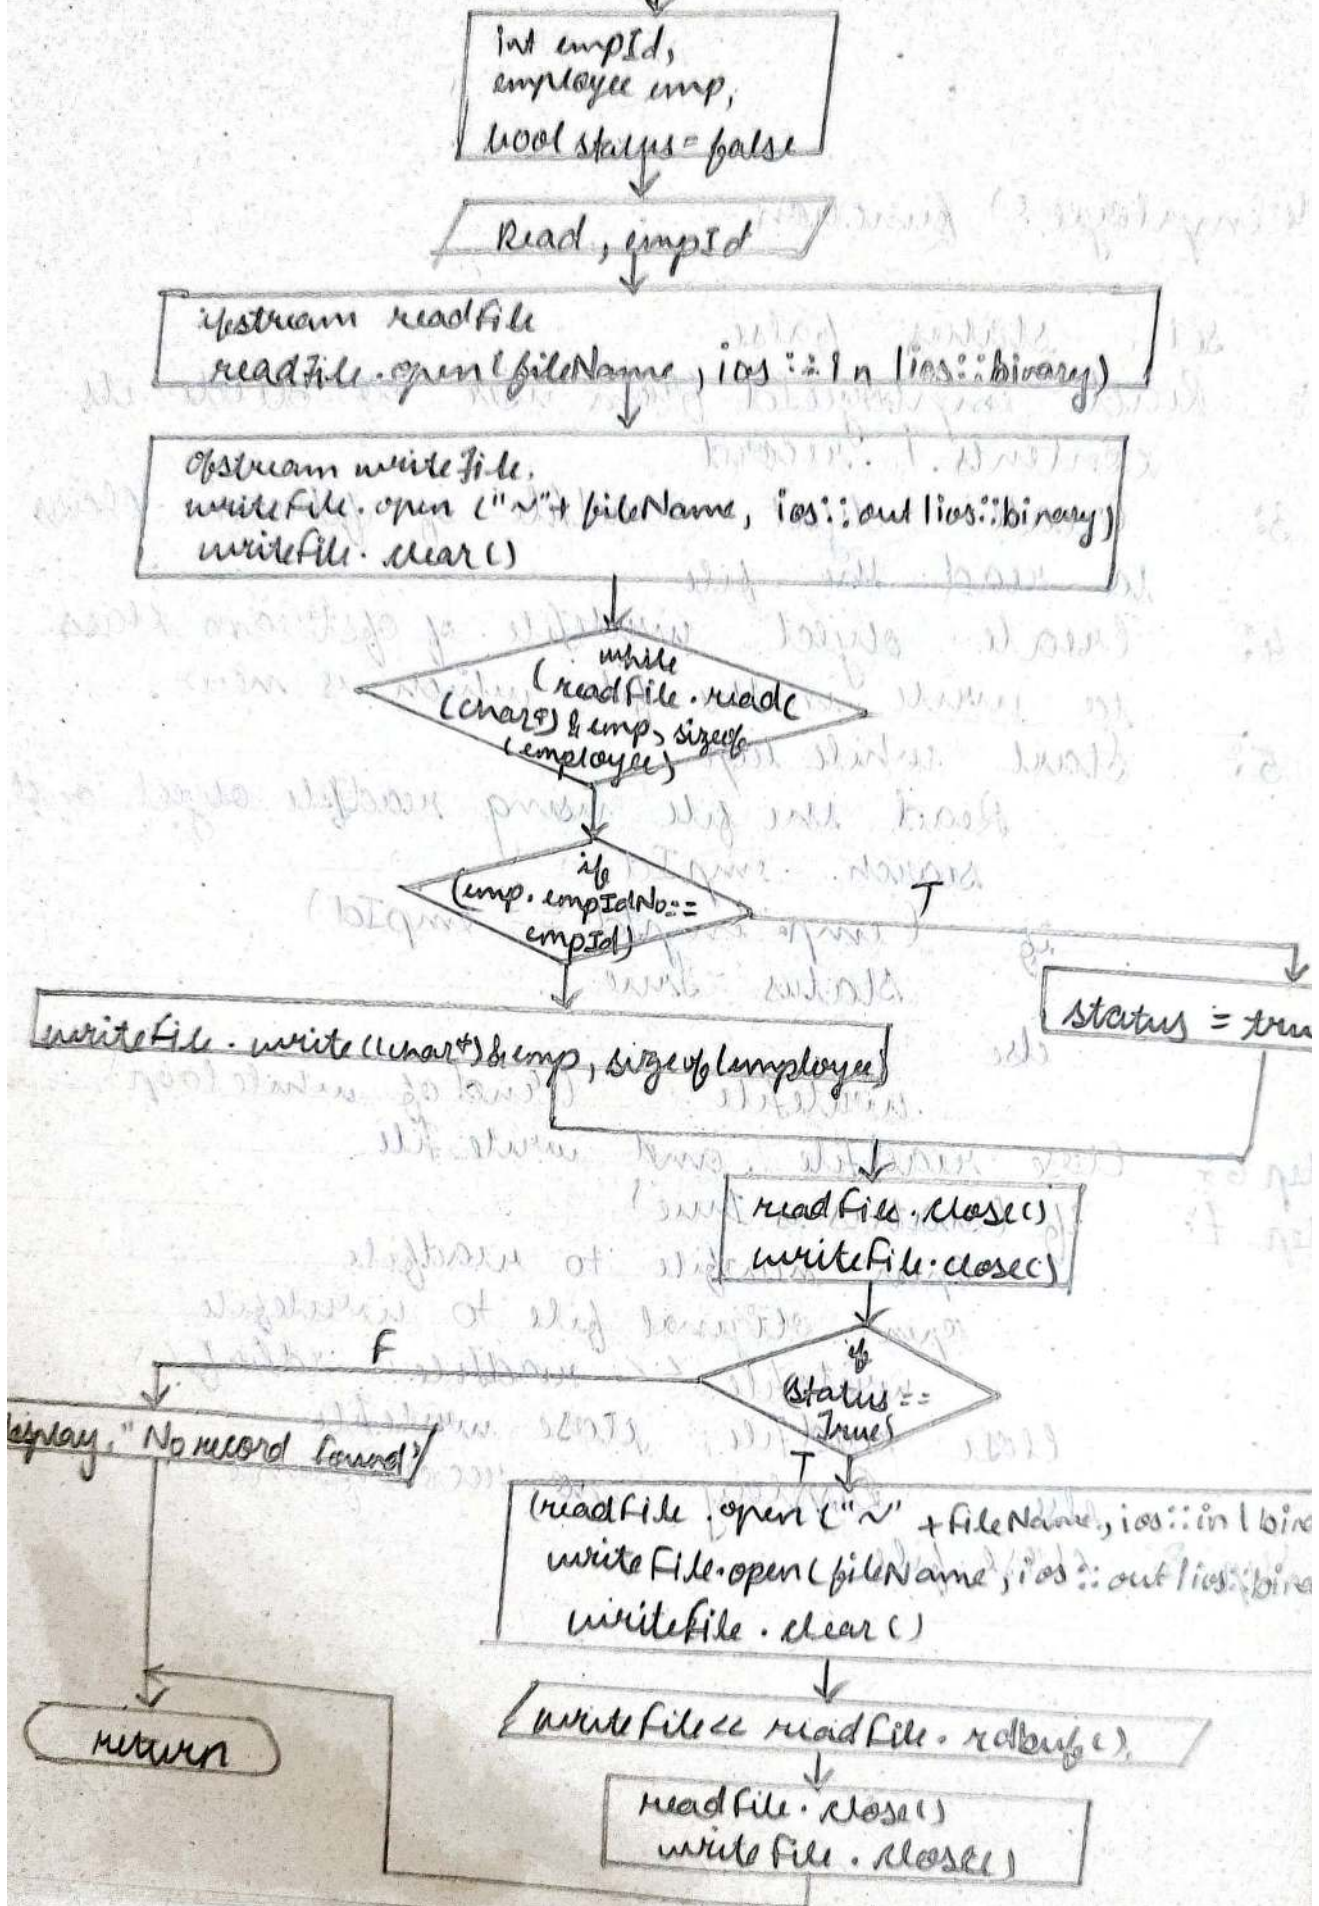 int empId,
employee emp,
bool status = false
Read, empId
ifstream readFile
readFile.open(fileName, ios::in |ios::binary)
Ofstream writeFile.
writeFile.open ("~"+ fileName, ios::out |ios::binary)
writeFile.clear()
while
(readFile.read(
(char*) & emp, sizeof
(employee)
if
(emp.empIdNo ==
empId)
T
status = tru
writeFile.write((char*)&emp, sizeof(employee)
readFile.close()
writeFile.close()
if
(status ==
True)
F
T
isplay, "No record found"
(readFile.open ("~" + fileName, ios::in | bina
writeFile.open(fileName, ios::out |ios::bina
writeFile.clear()
writeFile<< readFile.rdbuf().
return
readFile.close()
writeFile.close()